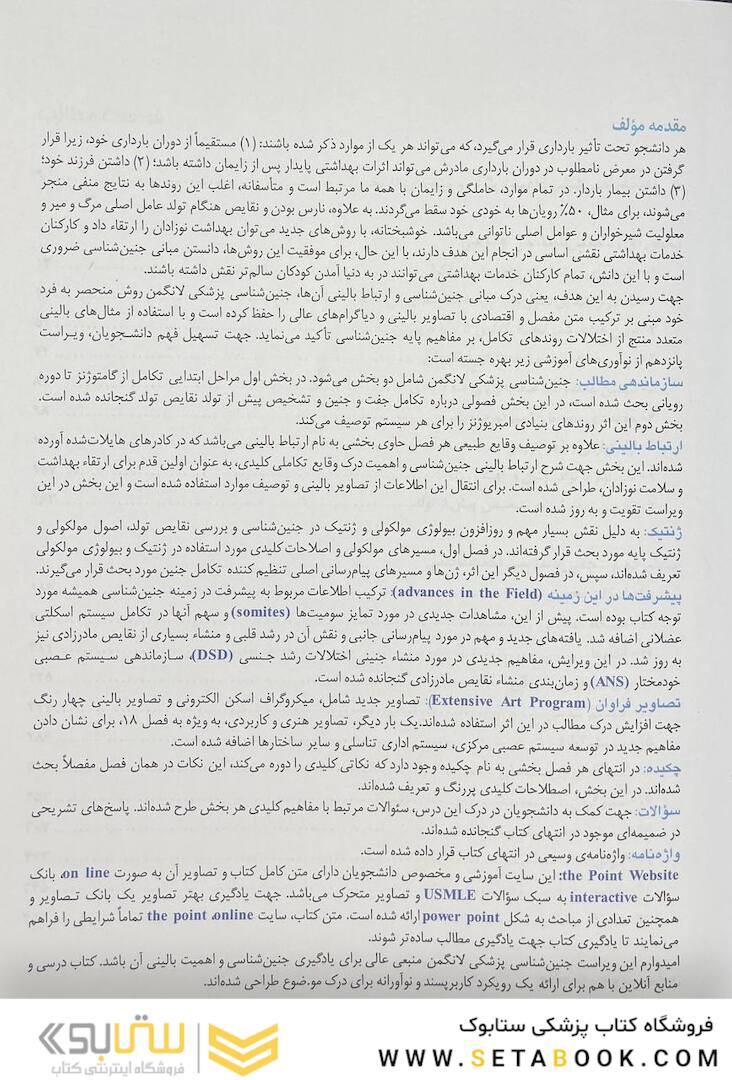 مقدمه مؤلف
هر دانشجو تحت تأثیر بارداری قرار می‌گیرد، که می‌تواند هر یک از موارد ذکر شده باشند: (۱) مستقیماً از دوران بارداری خود، زیرا قرار
گرفتن در معرض نامطلوب در دوران بارداری مادرش می‌تواند اثرات بهداشتی پایدار پس از زایمان داشته باشد؛ (۲) داشتن فرزند خود؛
(۳) داشتن بیمار باردار. در تمام موارد، حاملگی و زایمان با همه ما مرتبط است و متأسفانه، اغلب این روندها به نتایج منفی منجر
می‌شوند، برای مثال، ۵۰٪ رویان‌ها به خودی خود سقط می‌گردند. به علاوه، نارس بودن و نقایص هنگام تولد عامل اصلی مرگ و میر و
معلولیت شیرخواران و عوامل اصلی ناتوانی می‌باشد. خوشبختانه، با روش‌های جدید می‌توان بهداشت نوزادان را ارتقاء داد و کارکنان
خدمات بهداشتی نقشی اساسی در انجام این هدف دارند، با این حال، برای موفقیت این روش‌ها، دانستن مبانی جنین‌شناسی ضروری
است و با این دانش، تمام کارکنان خدمات بهداشتی می‌توانند در به دنیا آمدن کودکان سالم‌تر نقش داشته باشند.
جهت رسیدن به این هدف، یعنی درک مبانی جنین‌شناسی و ارتباط بالینی آن‌ها، جنین‌شناسی پزشکی لانگمن روش منحصر به فرد
خود مبنی بر ترکیب متن مفصل و اقتصادی با تصاویر بالینی و دیاگرام‌های عالی را حفظ کرده است و با استفاده از مثال‌های بالینی
متعدد منتج از اختلالات روندهای تکامل، بر مفاهیم پایه جنین‌شناسی تأکید می‌نماید. جهت تسهیل فهم دانشـجویان، ویـراست
پانزدهم از نوآوری‌های آموزشی زیر بهره جسته است:
سازماندهی مطالب: جنین‌شناسی پزشکی لانگمن شامل دو بخش می‌شود. در بخش اول مراحل ابتدایی تکامل از گامتوژنز تا دوره
رویانی بحث شده است، در این بخش فصولی درباره تکامل جفت و جنین و تشخیص پیش از تولد نقایص تولد گنجانده شده است.
بخش دوم این اثر روندهای بنیادی امبریوژنز را برای هر سیستم توصیف می‌کند.
ارتباط بالینی: علاوه بر توصیف وقایع طبیعی هر فصل حاوی بخشی به نام ارتباط بالینی می‌باشد که در کادرهای هایلات‌شده آورده
شده‌اند. این بخش جهت شرح ارتباط بالینی جنین‌شناسی و اهمیت درک وقایع تکاملی کلیدی، به عنوان اولین قدم برای ارتقاء بهداشت
و سلامت نوزادان، طراحی شده است. برای انتقال این اطلاعات از تصاویر بالینی و توصیف موارد استفاده شده است و این بخش در این
ویراست تقویت و به روز شده است.
ژنتیک: به دلیل نقش بسیار مهم و روزافزون بیولوژی مولکولی و ژنتیک در جنین‌شناسی و بررسی نقایص تولد، اصول مولکولی و
ژنتیک پایه مورد بحث قرار گرفته‌اند. در فصل اول، مسیرهای مولکولی و اصلاحات کلیدی مورد استفاده در ژنتیک و بیولوژی مولکولی
تعریف شده‌اند، سپس، در فصول دیگر این اثر، ژن‌ها و مسیرهای پیام‌رسانی اصلی تنظیم کننده تکامل جنین مورد بحث قرار می‌گیرند.
پیشرفت‌ها در این زمینه (advances in the Field): ترکیب اطلاعات مربوط به پیشرفت در زمینه جنین‌شناسی همیشه مورد
توجه کتاب بوده است. پیش از این، مشاهدات جدیدی در مورد تمایز سومیت‌ها (somites) و سهم آنها در تکامل سیستم اسکلتی
عضلانی اضافه شد. یافته‌های جدید و مهم در مورد پیام‌رسانی جانبی و نقش آن در رشد قلبی و منشاء بسیاری از نقایص مادرزادی نیز
به روز شد. در این ویرایش، مفاهیم جدیدی در مورد منشاء جنینی اختلالات رشد جنـسی (DSD)، سـازماندهی سیـستم عـصبی
خودمختار (ANS) و زمان‌بندی منشاء نقایص مادرزادی گنجانده شده است.
تصاویر فراوان (Extensive Art Program): تصاویر جدید شامل، میکروگراف اسکن الکترونی و تصاویر بالینی چهار رنگ
جهت افزایش درک مطالب در این اثر استفاده شده‌اند.یک بار دیگر، تصاویر هنری و کاربردی، به ویژه به فصل ۱۸، برای نشان دادن
مفاهیم جدید در توسعه سیستم عصبی مرکزی، سیستم اداری تناسلی و سایر ساختارها اضافه شده است.
چکیده: در انتهای هر فصل بخشی به نام چکیده وجود دارد که نکاتی کلیدی را دوره می‌کند، این نکات در همان فصل مفصلاً بحث
شده‌اند. در این بخش، اصطلاحات کلیدی پررنگ و تعریف شده‌اند.
سؤالات: جهت کمک به دانشجویان در درک این درس، سئوالات مرتبط با مفاهیم کلیدی هر بخش طرح شده‌اند. پاسخ‌های تشریحی
در ضمیمه‌ای موجود در انتهای کتاب گنجانده شده‌اند.
واژه‌نامه: واژه‌نامه‌ی وسیعی در انتهای کتاب قرار داده شده است.
the Point Website: این سایت آموزشی و مخصوص دانشجویان دارای متن کامل کتاب و تصاویر آن به صورت on line، بانک
سؤالات interactive به سبک سؤالات USMLE و تصاویر متحرک می‌باشد. جهت یادگیری بهتر تصاویر یک بانک تـصاویر و
همچنین تعدادی از مباحث به شکل power point ارائه شده است. متن کتاب، سایت the point ،online تماماً شرایطی را فراهم
می‌نمایند تا یادگیری کتاب جهت یادگیری مطالب ساده‌تر شوند.
امیدوارم این ویراست جنین‌شناسی پزشکی لانگمن منبعی عالی برای یادگیری جنین‌شناسی و اهمیت بالینی آن باشد. کتاب درسی و
منابع آنلاین با هم برای ارائه یک رویکرد کاربرپسند و نوآورانه برای درک مو.ضوع طراحی شده‌اند.
فروشگاه کتاب پزشکی ستابوک
WWW.SETABOOK.COM
ستابوک
فروشگاه اینترنتی کتاب